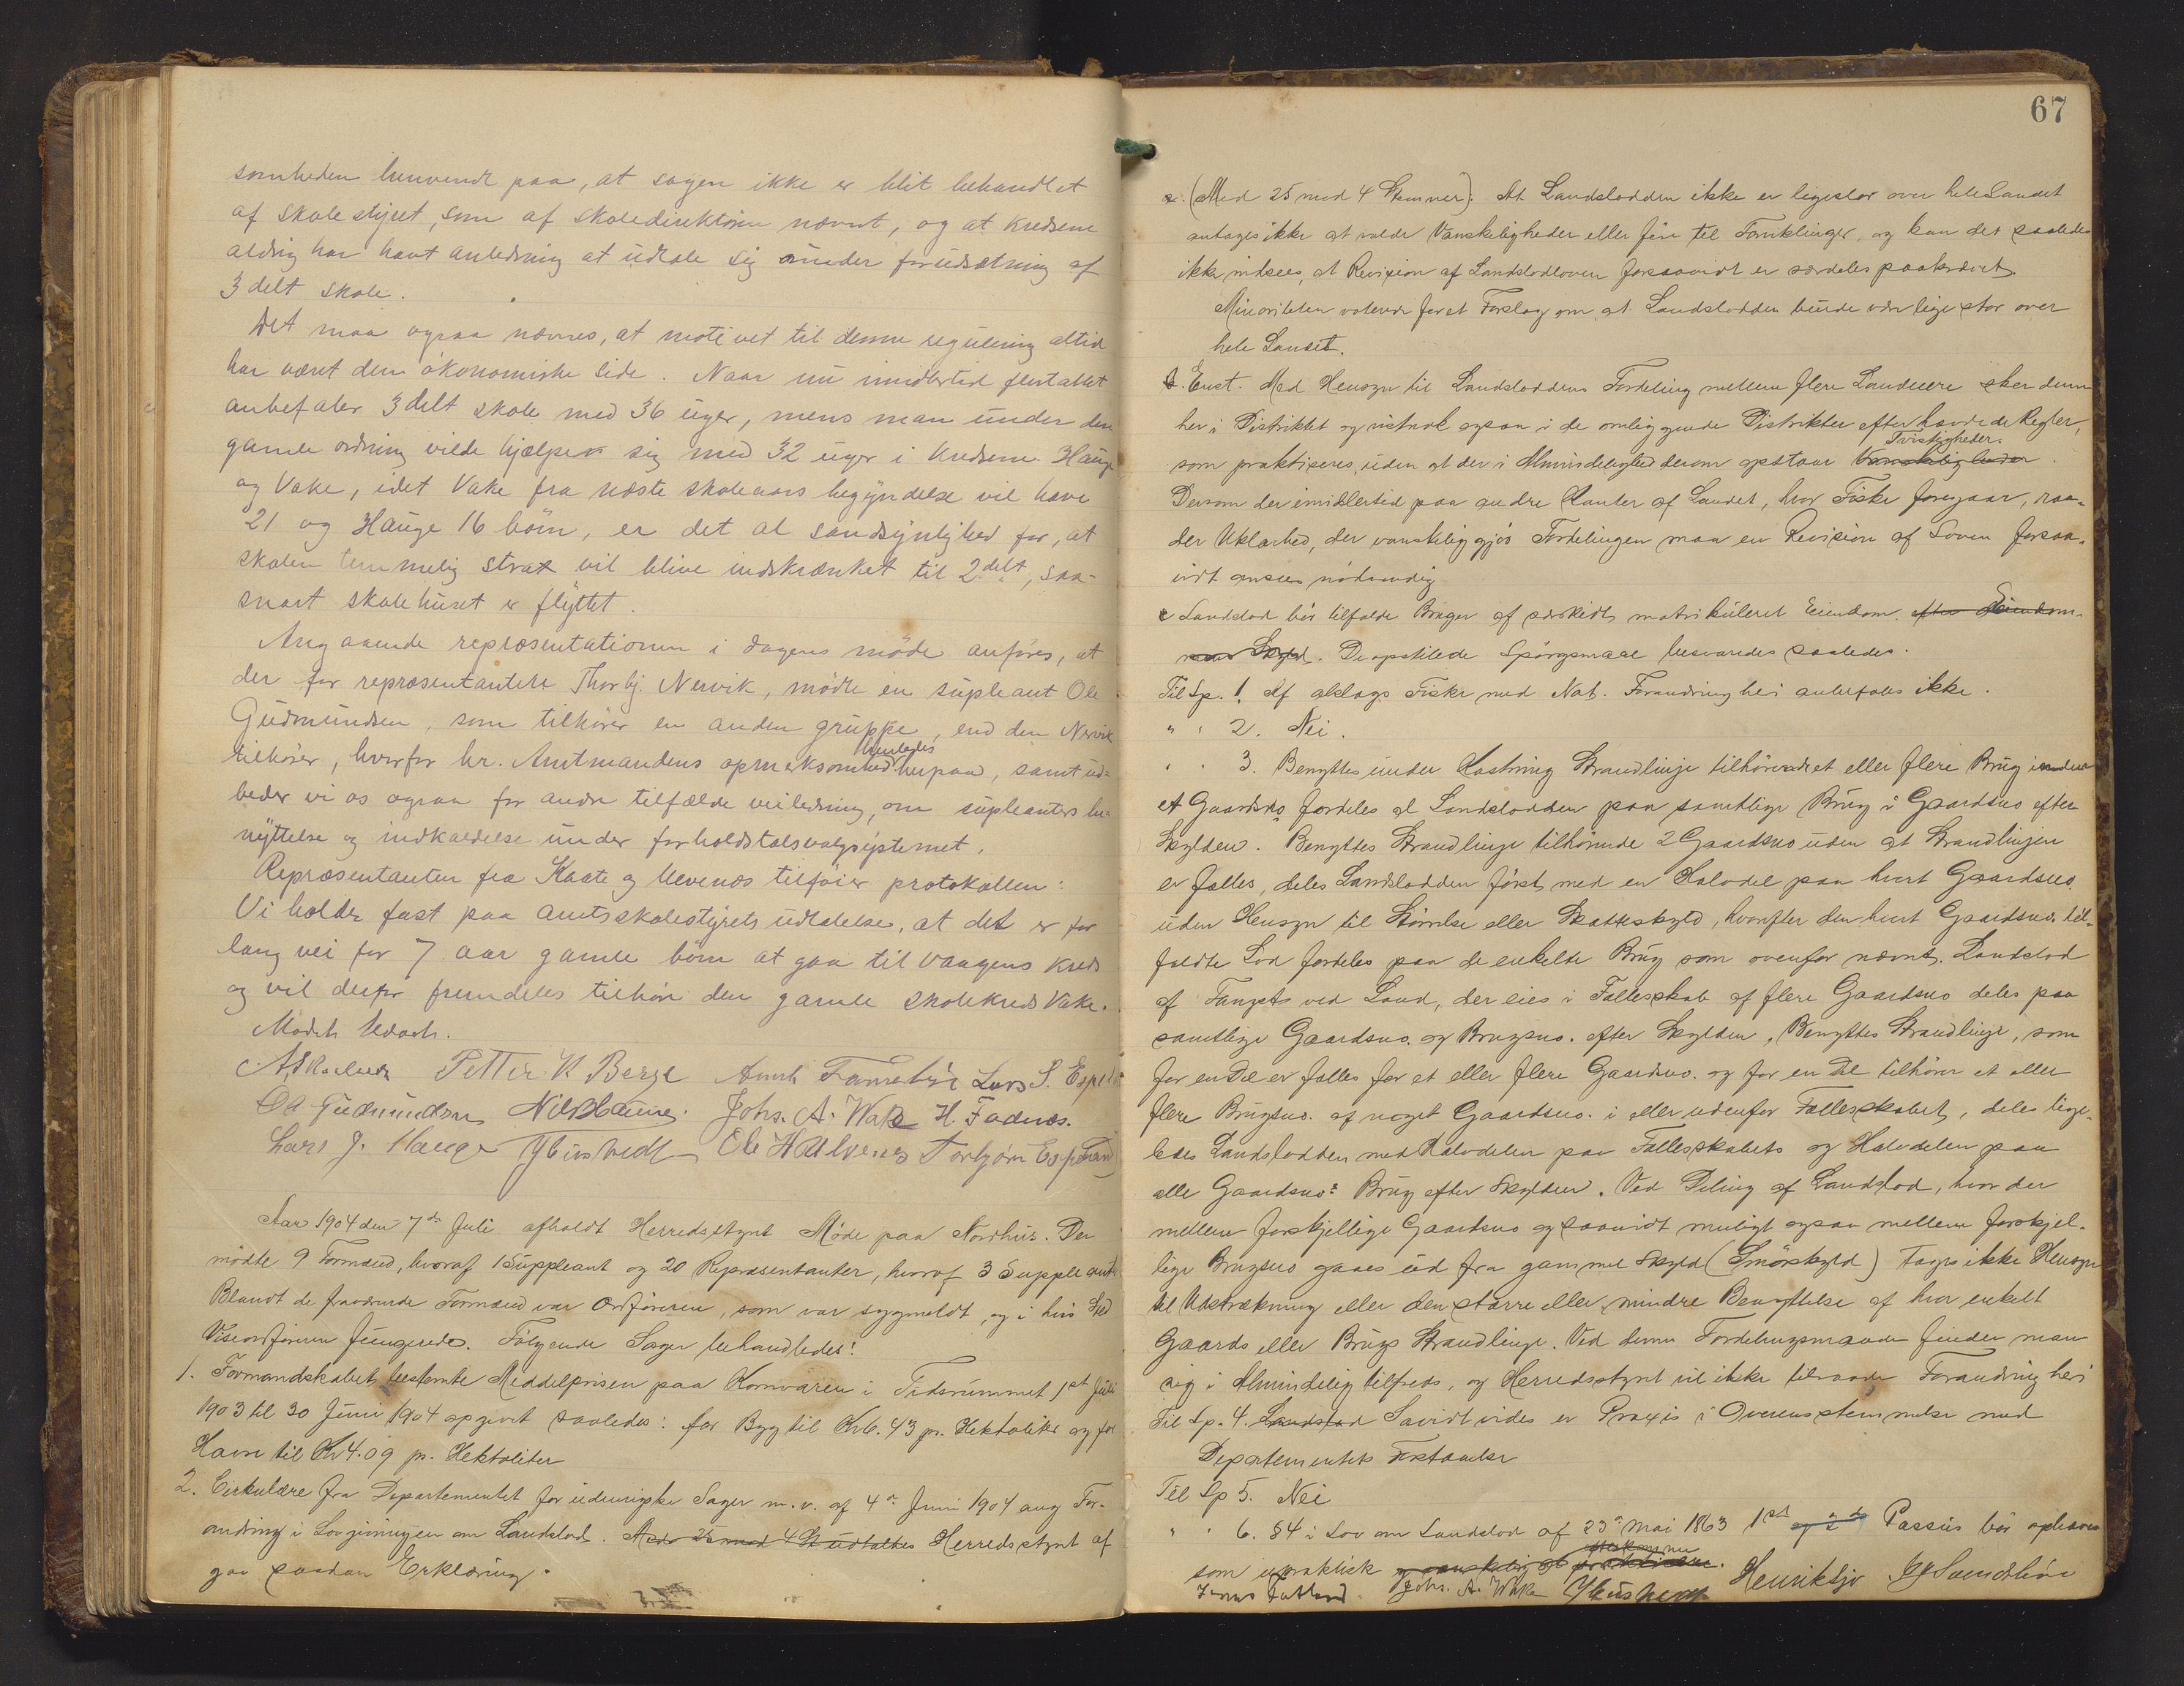 somheden henvendt paa, at sagen ikke er blit behandlet
af skolestyret, som af skoledirektøren nævnt, og at kredsene
aldrig har havt anledning at udtale sig under forudsætning af
3 delt skole.
Det maa ogsaa nævnes, at motivet til denne regulering altid
har været den økonomiske side. Naar nu imidlertid flertallet
anbefaler 3 delt skole med 36 uger, mens man under den
gamle ordning vilde hjælpe sig med 32 uger i kredsene Hauge
og Vake, idet Vake fra næste skoleaars begyndelse vil have
21 og Hauge 16 børn, er det al sandsynlighed for, at
skolen temmelig strax vil blive indskrænket til 2 delt, saa-
snart skolehuset er flyttet.
Angaaende repræsentationen i dagens møde anføres, at
der for repræsentanten Thorbj. Nervik, mødte en supleant Ole
Gudmundsen, som tilhører en anden gruppe, end den Nervik
tilhører, hvorfor hr. Amtmandens opmerksomhed henledes herpaa, samt ud-
beder vi os ogsaa for andre tilfælde veiledning, om supleanters be-
nyttelse og indkaldelse under forholdstalsvalgsystemet.
Repræsentanten fra Kaate og Ulvenes tilføier protokollen:
Vi holder fast paa amtsskolestyrets udtalelse, at det er for
lang vei for 7 aar gamle børn at gaa til Vaagens kreds
og vil derfor fremdeles tilhøre den gamle skolekreds Vake.
Mødet hævet.
Petter K Berge Lars S. Espeland
Ole Gudmundsen Nils Hauge. Johs. A. Wake H. Fadnæs.
Lars J. Hauge Ole H Ulvenes Torbjørn Espeland
Aar 1904 den 7de Juli afholdt Herredsstyret Møde paa Nordhus. Der
mødte 9 Formænd, hvoraf 1 Suppleant og 20 Repræsentanter, hvoraf 3 Suppleanter
Blandt de fraværende Formænd var Ordføreren, som var sygmeldt, og i hvis Sted
Viseordføreren fungerede. Følgende Sager behandledes:
1. Formandskabet bestemte Middelprisen paa Kornvarer i Tidsrummet 1st Juli
1903 til 30 Juni 1904 opgivet saaledes: for Byg til Kr 6.43 pr. Hektoliter og for
Havre til Kr 4.09 pr. Hektoliter
2. Cirkulære fra Departementet for udenrigske Sager m. v. af 4de Juni 1904 ang For-
andring i Lovgivningen om Landslod. Med 25 mod 4 St udtaltes Herredsstyret af
gav saadan Erklæring.
67
a. (Med 25 mod 4 Stemmer): At Landslodden ikke er ligestor over hele Landet
antages ikke at volde Vanskeligheder eller føre til Forviklinger, og kan det saaledes
ikke indsees, at Revision af Landslodloven forsaavidt er særdeles paakrævet.
Minoriteten voterede for et Forslag om at Landslodden burde være lige stor over
hele Landet.
b. Enst. Med Hensyn til Landsloddens Fordeling mellem flere Landeiere sker denne
her i Distriktet og vistnok ogsaa i de omliggende Distrikter efter hævdede Regler,
som praktiseres, uden at der i Almindelighed derom opstaar Vanskeligheder Tvistigheder.
Dersom der imidlertid paa andre Kanter af Landet, hvor Fiske foregaar, raa-
der Uklarhed, der vanskeliggjør Fordelingen maa en Revision af Loven forsaa-
vidt ansees nødvendig
c Landslod bør tilfalde Bruger af særskildt matrikuleret Eiendom. efter Eiendom-
mens Skyld. De opstillede Spørgsmaal besvaredes saaledes.
Til Sp. 1. Af alslags Fiske med Not. Forandring heri anbefales ikke.
" " 2. Nei.
" " 3. Benyttes under Kastning Strandlinje tilhørende et eller flere Brug inden
et Gaardsno. fordeles al Landslodden paa samtlige Brug i Gaardsno efter
Skylden. Benyttes Strandlinje tilhørende 2 Gaardsno uden at Strandlinjen
er fælles, deles Landslodden først med en Halvdel paa hvert Gaardsno.
uden Hensyn til Størrelse eller Skatteskyld, hvorefter den hvert Gaardsno. til-
faldte Lod fordeles paa de enkelte Brug som ovenfor nævnt. Landslod
af Fangst ved Land, der eies i Fællesskab af flere Gaardsno deles paa
samtlige Gaardsno. og Brugsno. efter Skylden. Benyttes Strandlinje, som
for en Del er fælles for et eller flere Gaardsno. og for en Del tilhører et eller
flere Brugsno. af noget Gaardsno. i eller udenfor Fællesskabet, deles lige-
ledes Landslodden med Halvdelen paa Fællesskabets og Halvdelen paa
alle Gaardsno: Brug efter Skylden. Ved Deling af Landslod, hvor der
mellem forskjellige Gaardsno og saavidt muligt ogsaa mellem forskjel-
lige Brugsno gaaes ud fra gammel Skyld (Smørskyld) tages ikke Hensyn
til Udstrækning eller den større eller mindre Benyttelse af hver enkelt
Gaards eller Brugs Strandlinje. Ved denne Fordelingsmaade finder man
sig i Almindelig tilfreds, og Herredsstyret vil ikke tilraade Forandring heri
Til Sp. 4. Landslod Saavidt vides er Praxis i Overensstemmelse med
Departementets Forstaaelse
Til Sp 5. Nei
" " 6. §4 i Lov om Landslod af 23de Mai 1863 1st og 2de Passus bør ophæves
som upraktisk og vanskelig at praktisere.
Jonas Fatland. Johs. A. Wake Henriksjo